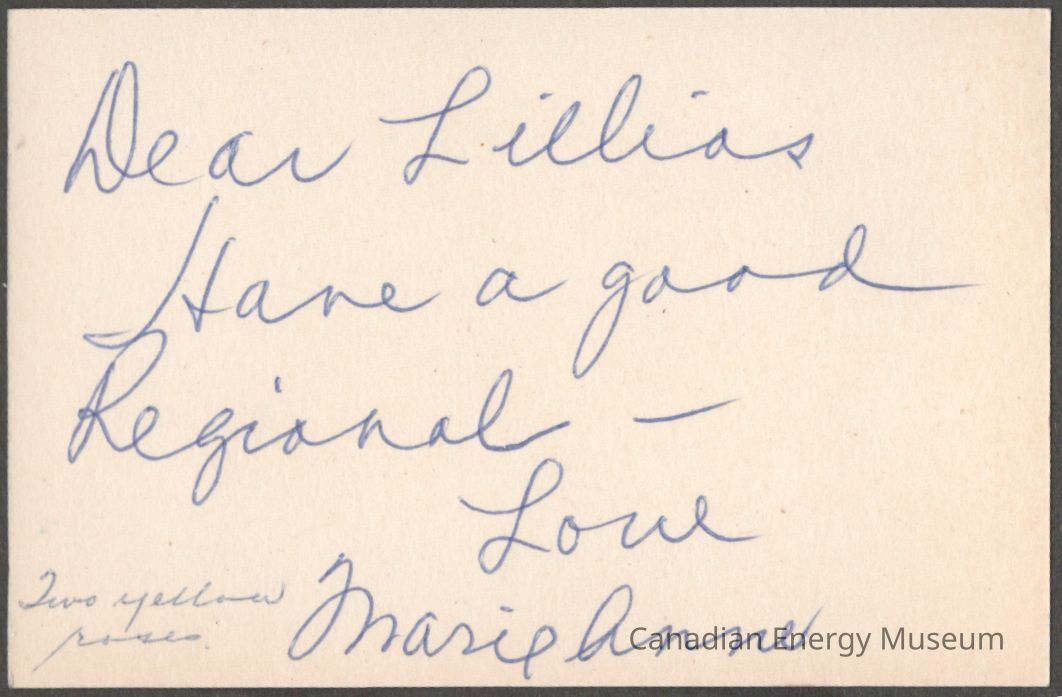 Dear Lillias
Have a good
Regional —
Love
Marie Anne
Two yellow
roses.
Canadian Energy Museum